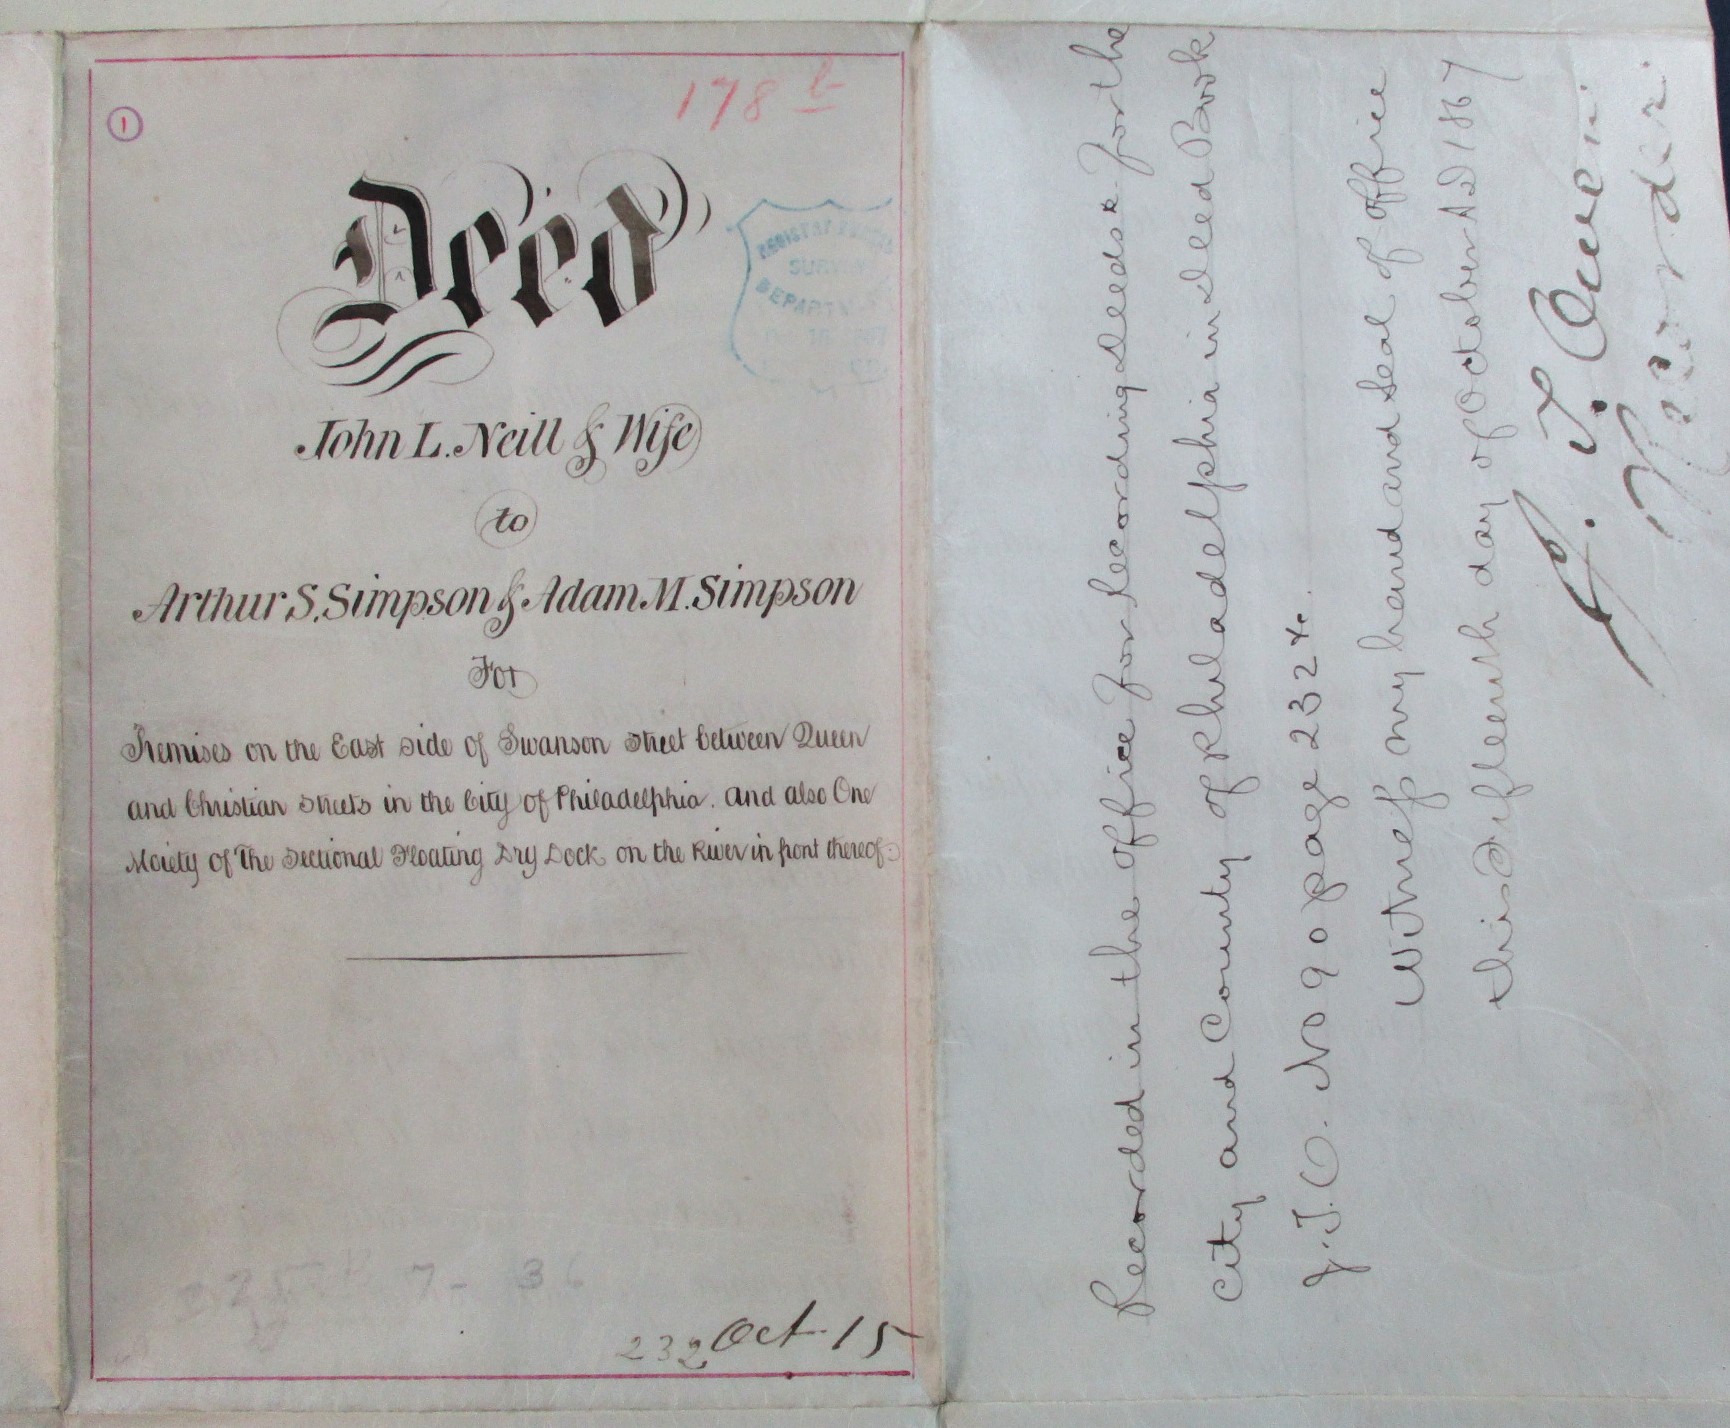 178 b
1
Deed
REGISTRY
SURVEY
DEPARTM
John L. Neill & Wife
to
Arthur S. Simpson & Adam M. Simpson
For
Premises on the East side of Swanson Street between Queen
and Christian Streets in the City of Philadelphia. And also One
Moiety of The Sectional Floating Dry Dock on the River in front thereof
232 Oct. 15
Recorded in the Office for Recording Deeds &c for the
City and County of Philadelphia in Deed Book
J.T.O. No 90 page 232 &c.
Witness my hand and Seal of Office
this Fifteenth day of October AD 1867
J. T. Owen
Recorder